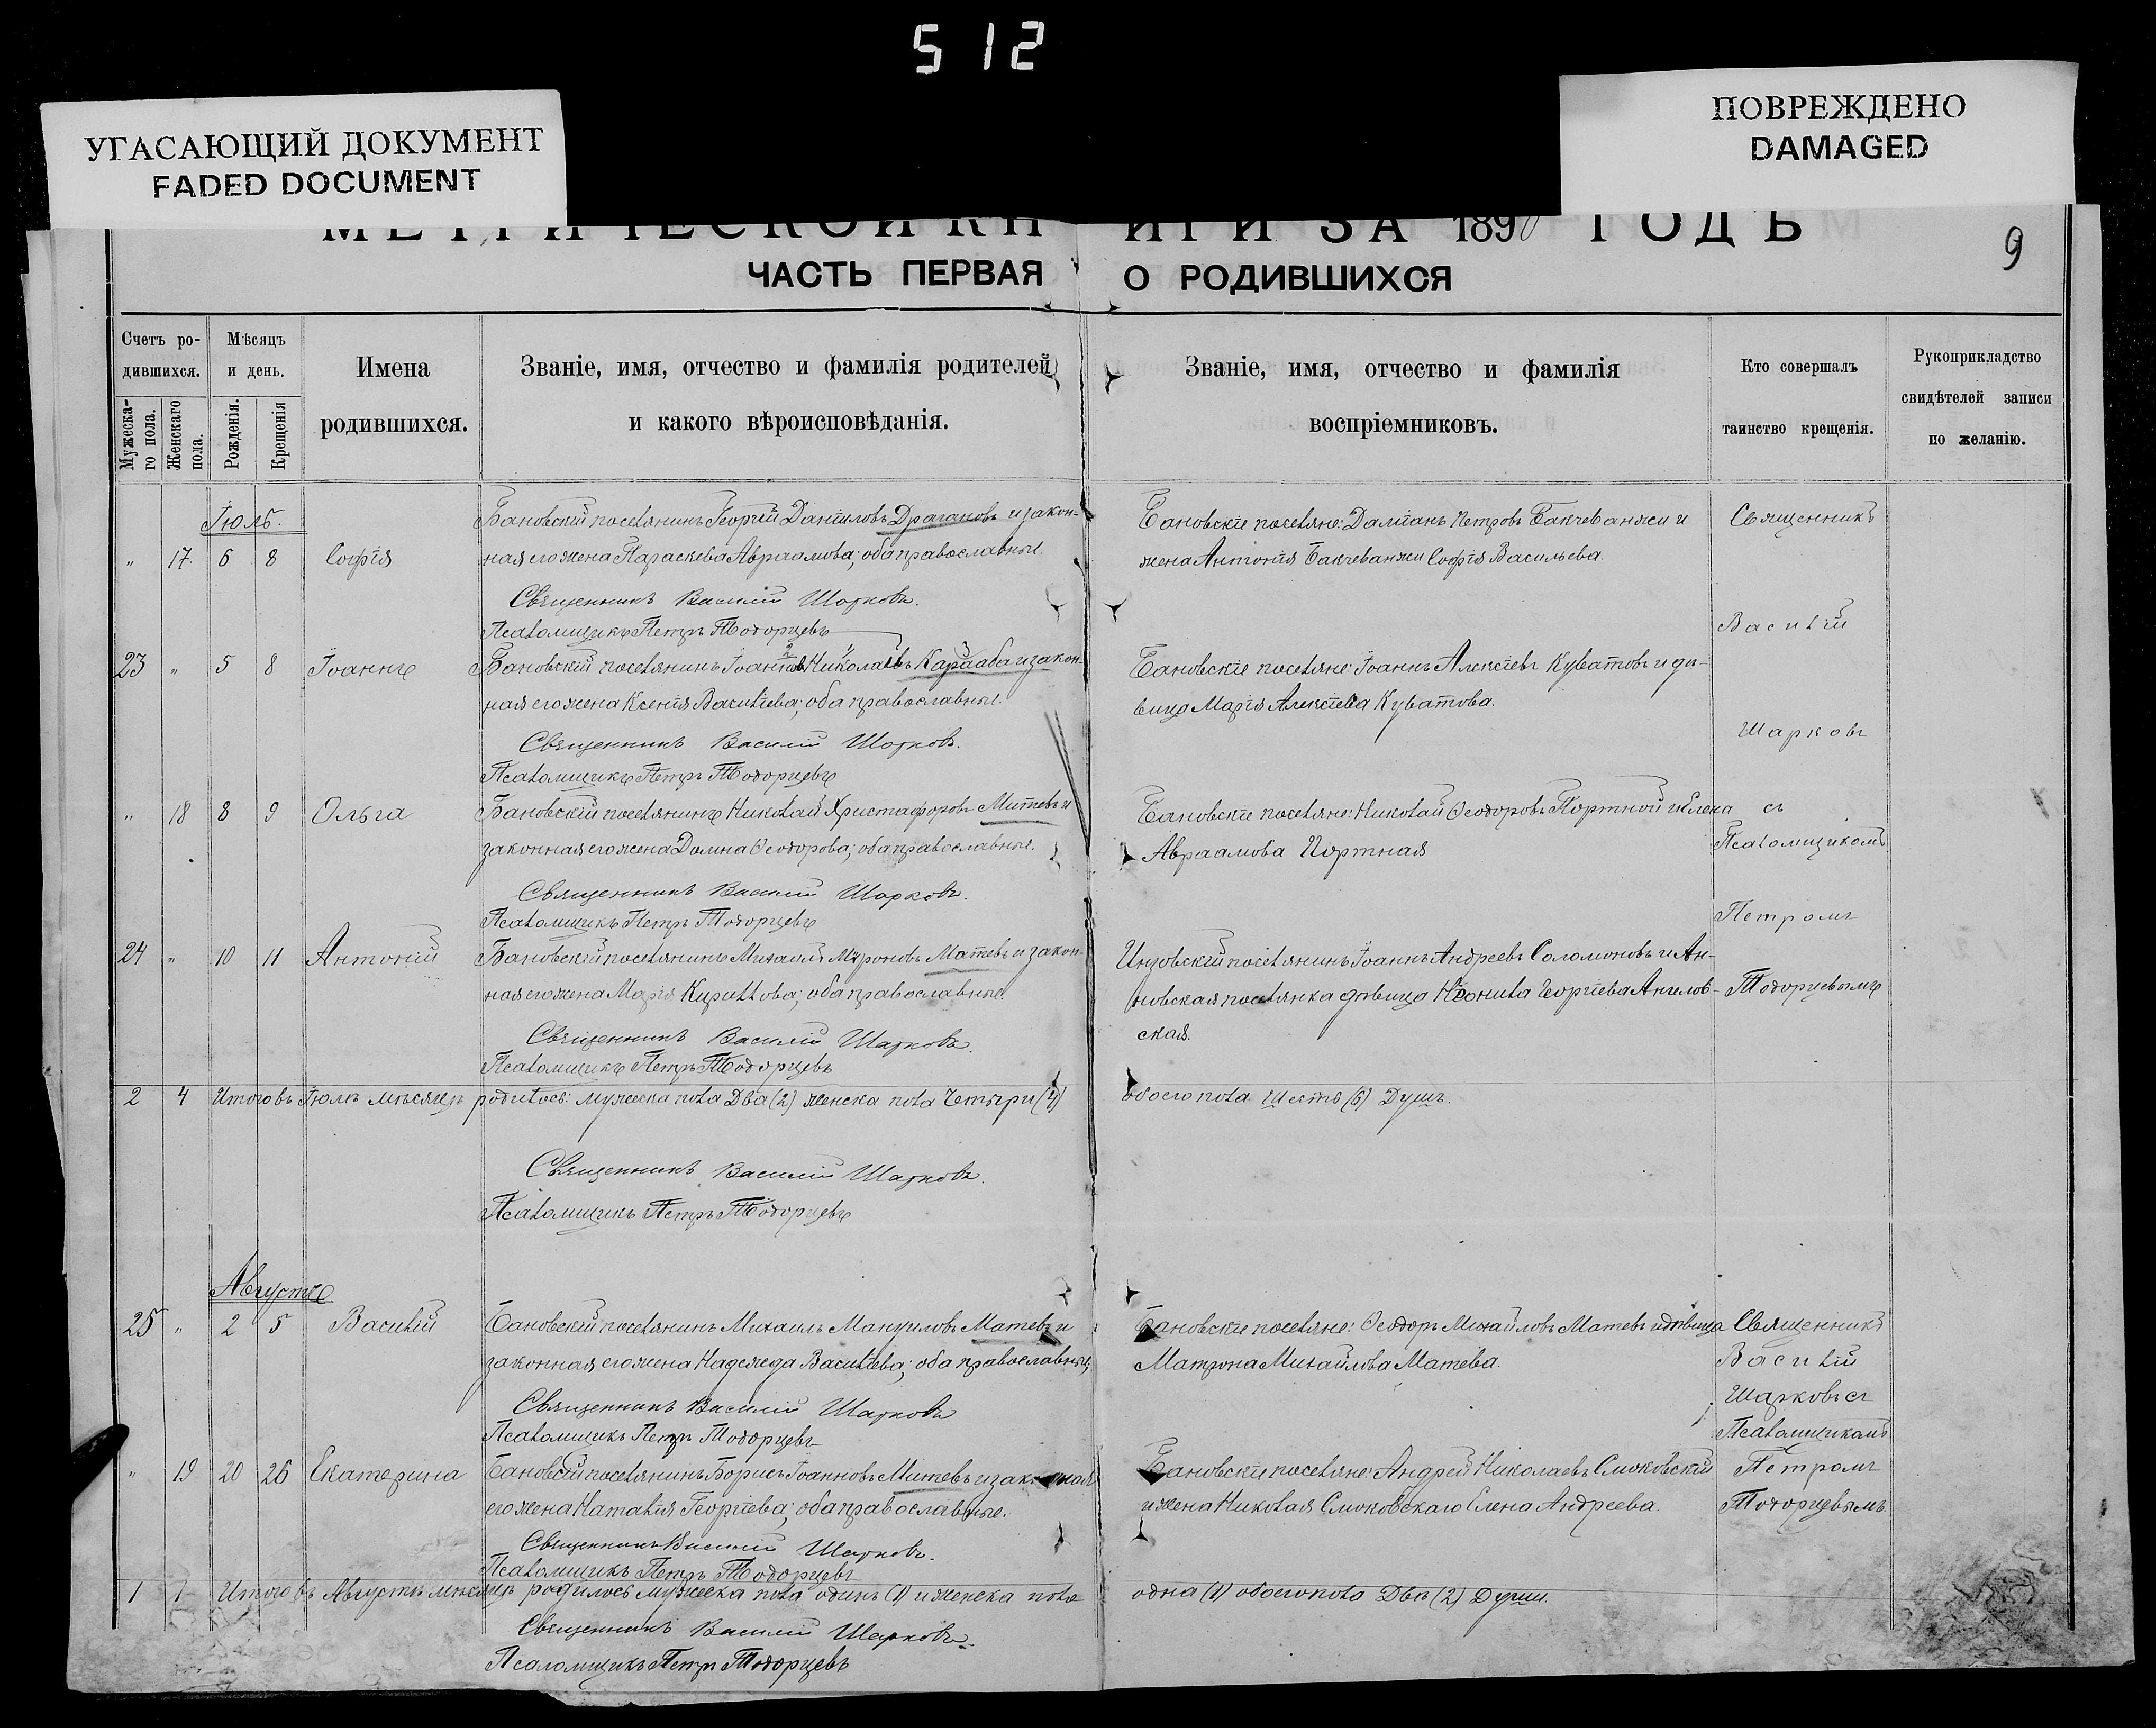 512
УГАСАЮЩИЙ ДОКУМЕНТ
FADED DOCUMENT
ПОВРЕЖДЕНО
DAMAGED
МЕТРИЧЕСКОЙ КНИГИ ЗА 1890 ГОДЪ
9
ЧАСТЬ ПЕРВАЯ О РОДИВШИХСЯ
Счетъ ро-
дившихся.
Мужеска-
го пола.
Женскаго
пола.
Мѣсяцъ
и день.
Рожденія.
Крещенія
Имена
родившихся.
Званіе, имя, отчество и фамилія родителей
и какого вѣроисповѣданія.
Званіе, имя, отчество и фамилія
воспріемниковъ.
Кто совершалъ
таинство крещенія.
Рукоприкладство
свидѣтелей записи
по желанію.
Іюль.
" 17. 6 8 Софія
Бановскій поселянинъ Георгій Даніиловъ Драгановъ и закон-
ная его жена Параскева Авраамова; оба православные.
Бановскіе поселяне: Даміанъ Петровъ Бакчеванжи и
жена Антонія Бакчеванжи Софія Васильева.
Священникъ
Священникъ Василій Шарковъ.
Псаломщикъ Петръ Тодорцевъ
Василій
23 " 5 8 Іоаннъ
Бановскій поселянинъ Іоаннъ Николаевъ Караабаа и закон-
ная его жена Ксенія Василіева; оба православные.
Бановскіе поселяне: Іоаннъ Алексіевъ Куватовъ и дѣ-
вица Марія Алексіева Куватова.
Шарковъ
Священникъ Василій Шарковъ.
Псаломщикъ Петръ Тодорцевъ
" 18 8 9 Ольга
Бановскій поселянинъ Николай Христафоровъ Митевъ и
законная его жена Домна Ѳеодорова; оба православные.
Бановскіе поселяне: Николай Ѳеодоровъ Портной и Елена
Авраамова Портная
съ
Псаломщикомъ
Священникъ Василій Шарковъ.
Псаломщикъ Петръ Тодорцевъ
Петромъ
24 " 10 11 Антоній
Бановскій поселянинъ Михаилъ Мѵроновъ Матевъ и закон-
ная его жена Марія Кириллова; оба православные.
Инзовскій поселянинъ Іоаннъ Андреевъ Соломоновъ и Ан-
новская поселянка дѣвица Неонила Георгіева Ангелов-
ская.
Тодорцевымъ
Священникъ Василій Шарковъ.
Псаломщикъ Петръ Тодорцевъ
2 4 Итого въ Іюлѣ мѣсяцѣ родилось: мужеска пола Два (2) женска пола Четыри (4)
обоего пола Шесть (6) Душъ.
Священникъ Василій Шарковъ.
Псаломщикъ Петръ Тодорцевъ
Августъ
25 " 2 5 Василій
Бановскій поселянинъ Михаилъ Мануиловъ Матевъ и
законная его жена Надежда Василіева; оба православные,
Бановскіе поселяне: Ѳеодоръ Михайловъ Матевъ и дѣвица
Матрона Михайлова Матева.
Священникъ
Василій
Шарковъ съ
Псаломщикомъ
Священникъ Василій Шарковъ
Псаломщикъ Петръ Тодорцевъ
" 19 20 26 Екатерина
Бановскій поселянинъ Борисъ Іоанновъ Митевъ и законная
его жена Наталія Георгіева; оба православные.
Бановскіе поселяне: Андрей Николаевъ Смоковскій
и жена Николая Смоковскаго Елена Андреева.
Петромъ
Тодорцевымъ.
Священникъ Василій Шарковъ.
Псаломщикъ Петръ Тодорцевъ
1 1 Итого въ Августѣ мѣсяцѣ родилось мужеска пола одинъ (1) и женска пола
одна (1) обоего пола Двѣ (2) Души.
Священникъ Василій Шарковъ.
Псаломщикъ Петръ Тодорцевъ